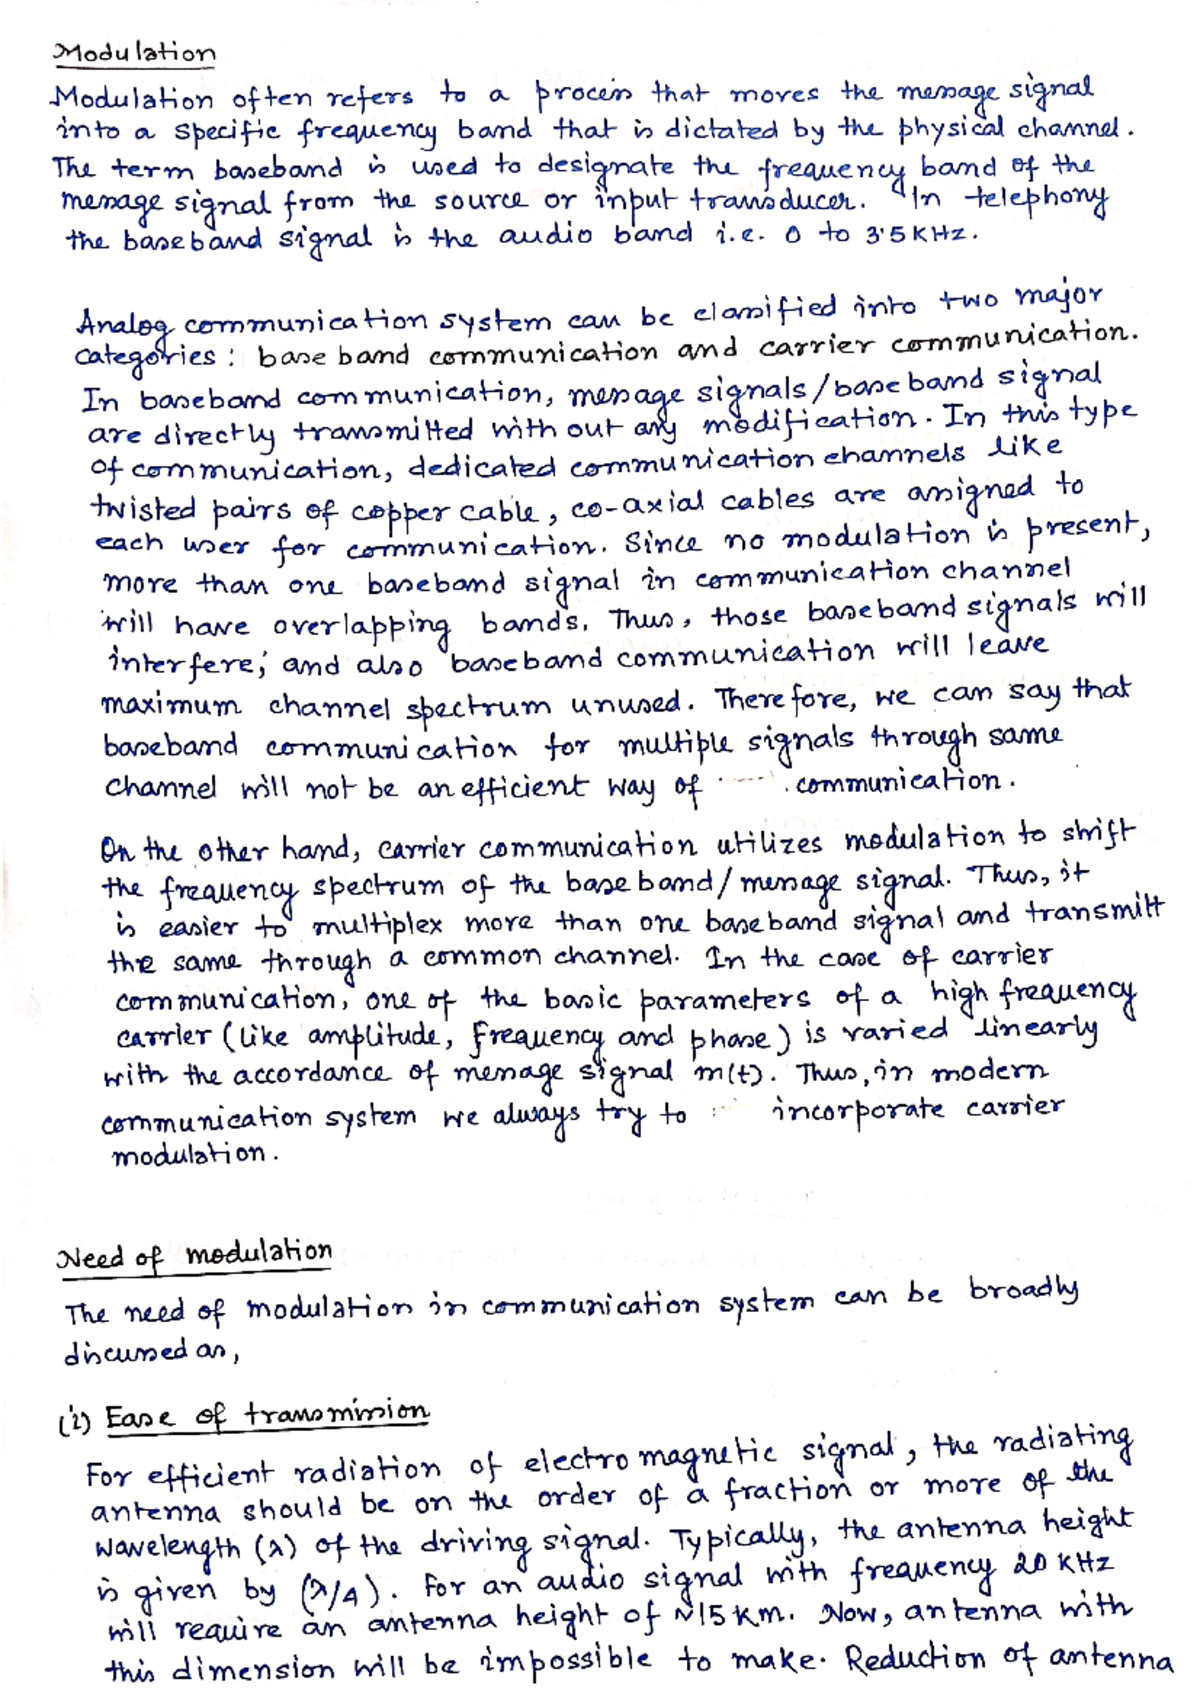 Modulation
Modulation often refers to a process that moves the message signal
into a specific frequency band that is dictated by the physical channel.
The term baseband is used to designate the frequency band of the
message signal from the source or input transducer. In telephony
the baseband signal is the audio band i.e. 0 to 3.5 KHz.
Analog communication system can be classified into two major
categories: baseband communication and carrier communication.
In baseband communication, message signals/baseband signal
are directly transmitted without any modification. In this type
of communication, dedicated communication channels like
twisted pairs of copper cable, co-axial cables are assigned to
each user for communication. Since no modulation is present,
more than one baseband signal in communication channel
will have overlapping bands. Thus, those baseband signals will
interfere; and also baseband communication will leave
maximum channel spectrum unused. Therefore, we can say that
baseband communication for multiple signals through same
channel will not be an efficient way of communication.
On the other hand, carrier communication utilizes modulation to shift
the frequency spectrum of the baseband/message signal. Thus, it
is easier to multiplex more than one baseband signal and transmitt
the same through a common channel. In the case of carrier
communication, one of the basic parameters of a high frequency
carrier (like amplitude, frequency and phase) is varied linearly
with the accordance of message signal m(t). Thus, in modern
communication system we always try to incorporate carrier
modulation.
Need of modulation
The need of modulation in communication system can be broadly
discussed as,
(i) Ease of transmission
For efficient radiation of electromagnetic signal, the radiating
antenna should be on the order of a fraction or more of the
wavelength (λ) of the driving signal. Typically, the antenna height
is given by (λ/4). For an audio signal with frequency 20 KHz
will require an antenna height of ~15 Km. Now, antenna with
this dimension will be impossible to make. Reduction of antenna